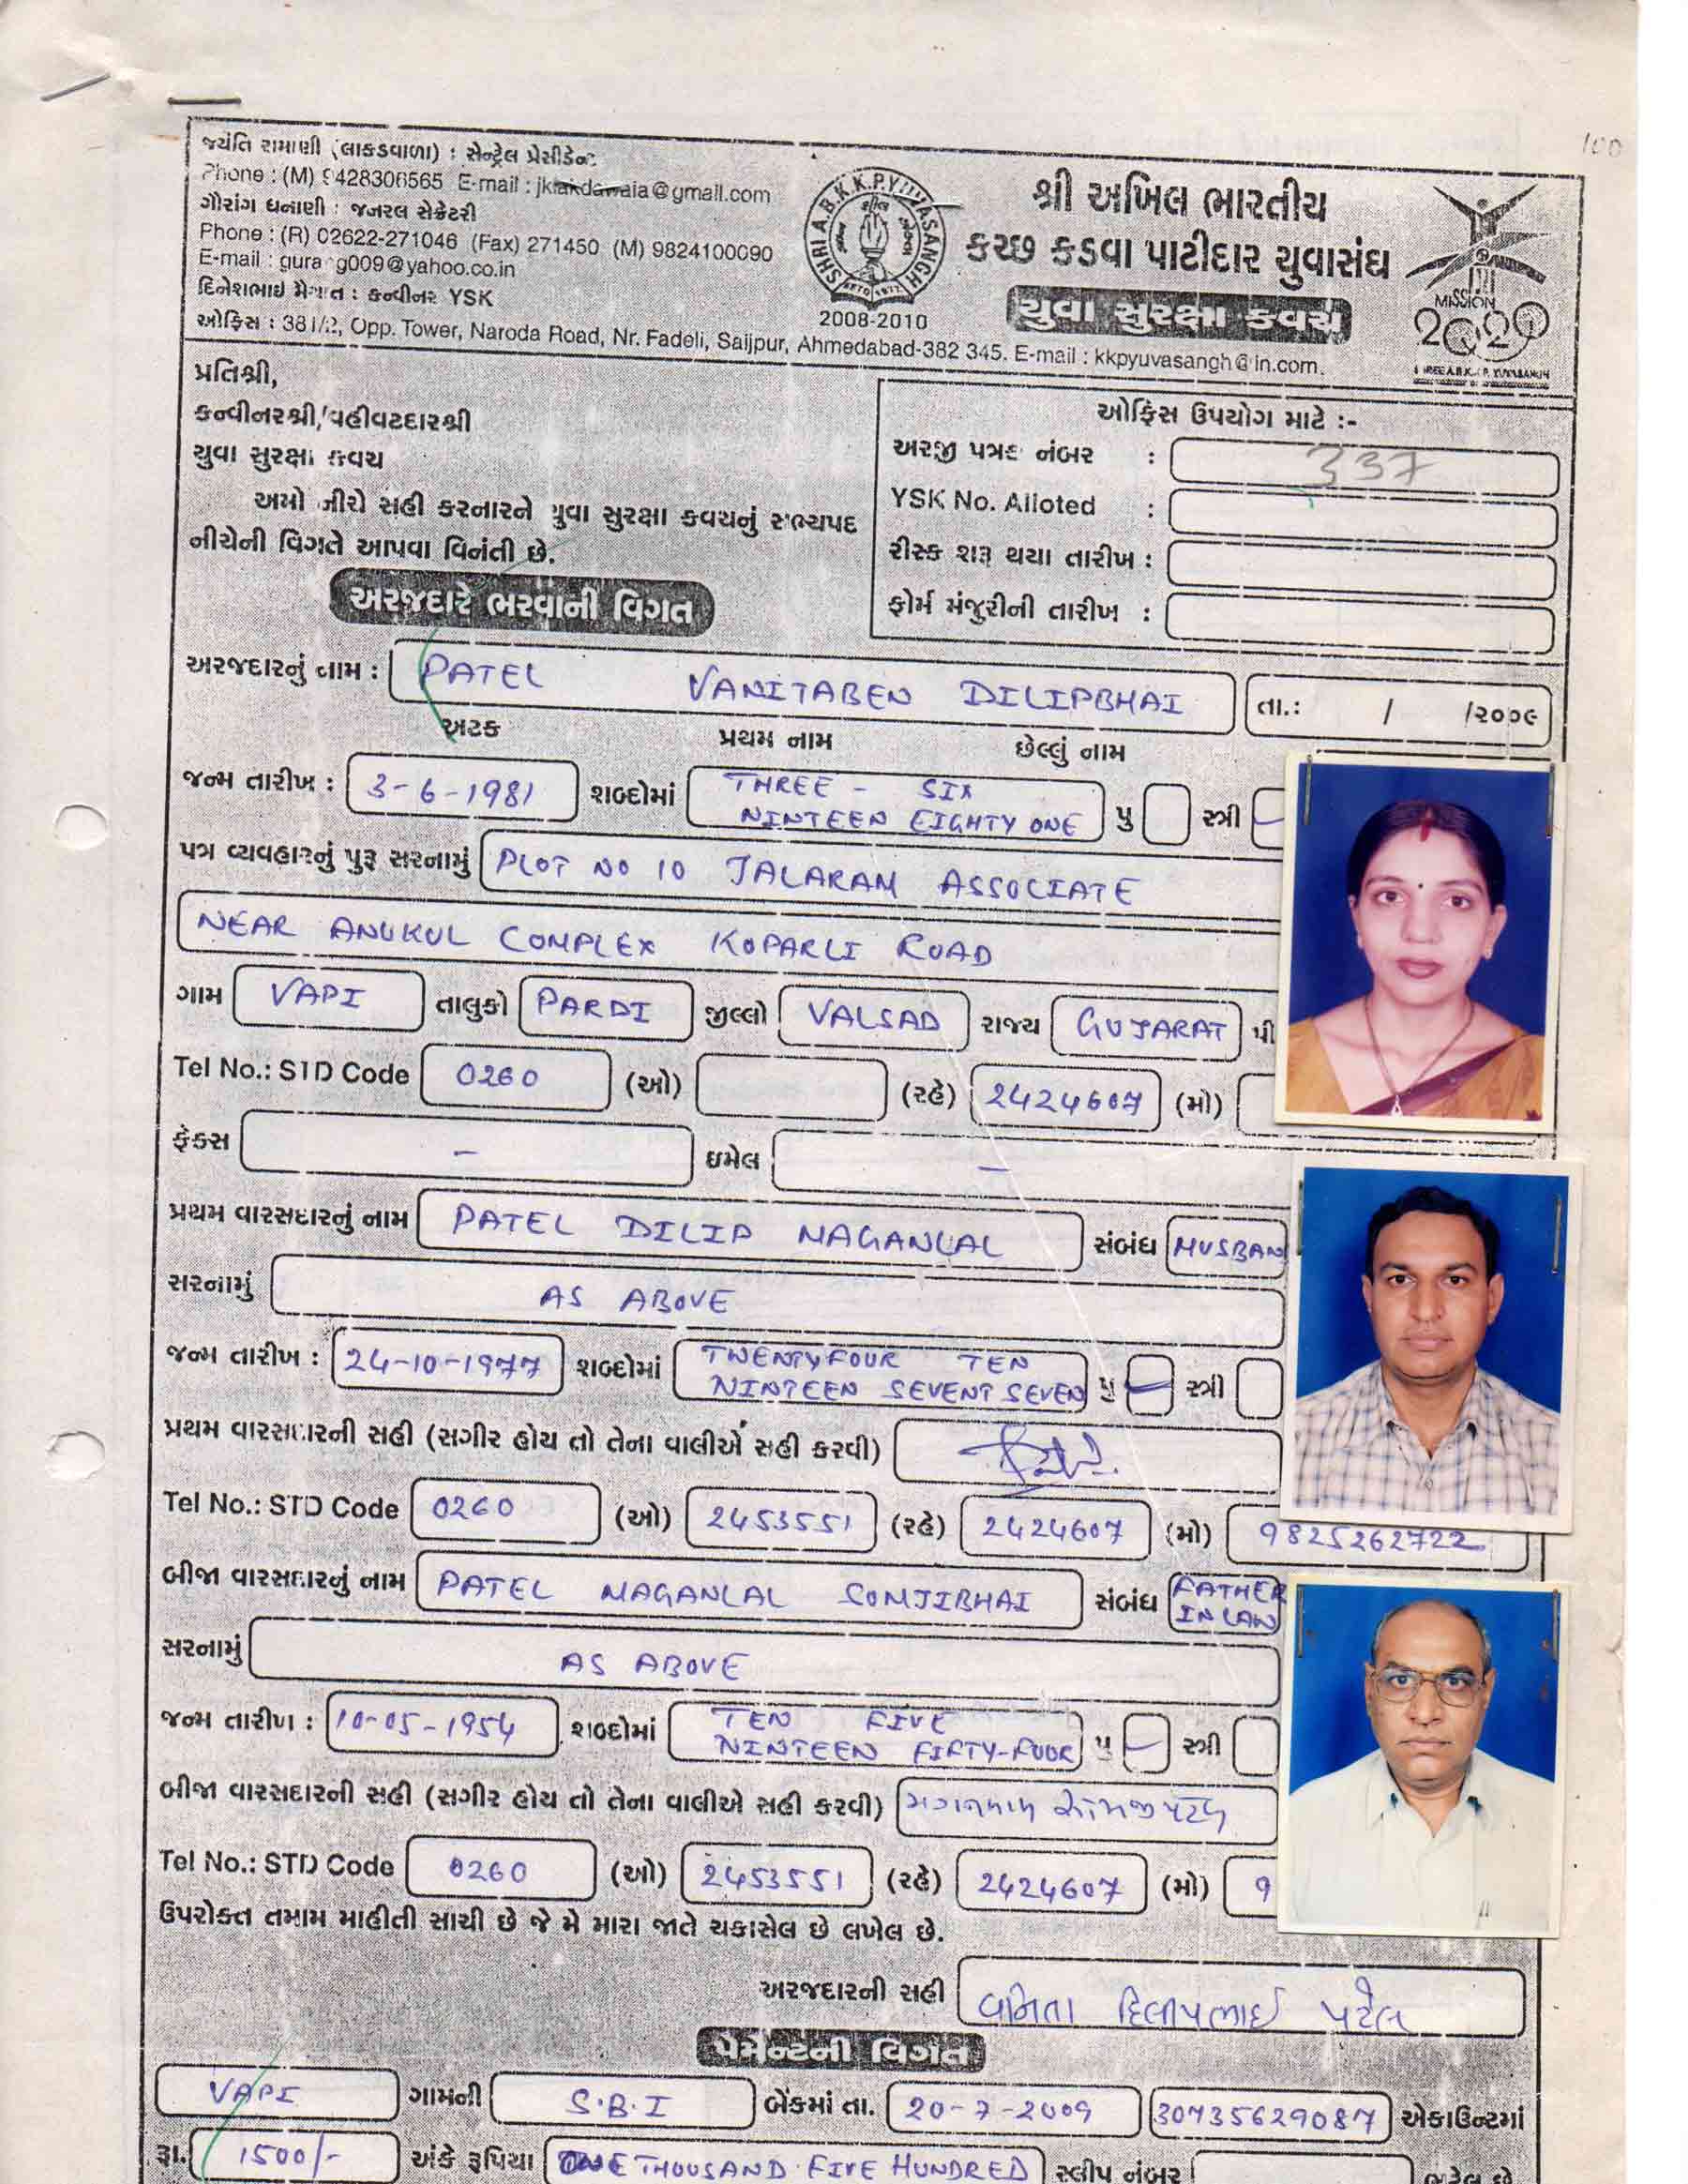 100
જયંતિ રામાણી (લાકડાવાળા) : સેન્ટ્રલ પ્રેસીડેન્ટ
Phone : (M) 9428306565 E-mail : jklakdawala@gmail.com
ગૌરાંગ ધનાણી : જનરલ સેક્રેટરી
Phone : (R) 02622-271046 (Fax) 271450 (M) 9824100090
E-mail : gura g009@yahoo.co.in
દિનેશભાઇ : કન્વીનર YSK
ઓફિસ : 381/2, Opp. Tower, Naroda Road, Nr. Fadeli, Saijpur, Ahmedabad-382 345. E-mail : kkpyuvasangh@in.com.
SHRI A.B.K.K.P. YUVASANGH
ESTD 1977
2008-2010
શ્રી અખિલ ભારતીય
કચ્છ કડવા પાટીદાર યુવાસંઘ
યુવા સુરક્ષા કવચ
MISSION
2020
SHREE A.B.K.K.P. YUVASANGH
પ્રતિશ્રી,
કન્વીનરશ્રી/વહીવટદારશ્રી
યુવા સુરક્ષા કવચ
અમો નીચે સહી કરનારને યુવા સુરક્ષા કવચનું સભ્યપદ
નીચેની વિગતે આપવા વિનંતી છે.
ઓફિસ ઉપયોગ માટે :-
અરજી પત્રક નંબર : 337
YSK No. Alloted :
રીસ્ક શરૂ થયા તારીખ :
ફોર્મ મંજુરીની તારીખ :
અરજદારે ભરવાની વિગત
અરજદારનું નામ : PATEL VANITABEN DILIPBHAI તા.: / /૨૦૦૯
અટક પ્રથમ નામ છેલ્લું નામ
જન્મ તારીખ : 3-6-1981 શબ્દોમાં THREE - SIX NINTEEN EIGHTY ONE પુ સ્ત્રી –
પત્ર વ્યવહારનું પુરૂ સરનામું PLOT NO 10 JALARAM ASSOCIATE
NEAR ANUKUL COMPLEX KOPARLI ROAD
ગામ VAPI તાલુકો PARDI જીલ્લો VALSAD રાજ્ય GUJARAT પી
Tel No.: STD Code 0260 (ઓ) (રહે) 2424607 (મો)
ફેક્સ – ઇમેલ –
પ્રથમ વારસદારનું નામ PATEL DILIP MAGANLAL સંબંધ HUSBAN
સરનામું AS ABOVE
જન્મ તારીખ : 24-10-1977 શબ્દોમાં TWENTYFOUR TEN NINTEEN SEVENT SEVEN પુ – સ્ત્રી
પ્રથમ વારસદારની સહી (સગીર હોય તો તેના વાલીએ સહી કરવી)
Tel No.: STD Code 0260 (ઓ) 2453551 (રહે) 2424607 (મો) 9825262722
બીજા વારસદારનું નામ PATEL MAGANLAL SOMJIBHAI સંબંધ FATHER IN LAW
સરનામું AS ABOVE
જન્મ તારીખ : 10-05-1954 શબ્દોમાં TEN FIVE NINTEEN FIFTY-FOUR પુ – સ્ત્રી
બીજા વારસદારની સહી (સગીર હોય તો તેના વાલીએ સહી કરવી) મગનલાલ સોમજી પટેલ
Tel No.: STD Code 0260 (ઓ) 2453551 (રહે) 2424607 (મો) 9
ઉપરોક્ત તમામ માહીતી સાચી છે જે મે મારા જાતે ચકાસેલ છે લખેલ છે.
અરજદારની સહી વનિતા દિલીપભાઈ પટેલ
પેમેન્ટની વિગત
VAPI ગામની S.B.I બેંકમાં તા. 20-7-2009 30735629087 એકાઉન્ટમાં
રૂા. 1500/- અંકે રૂપિયા ONE THOUSAND FIVE HUNDRED સ્લીપ નંબર ભરેલ છે